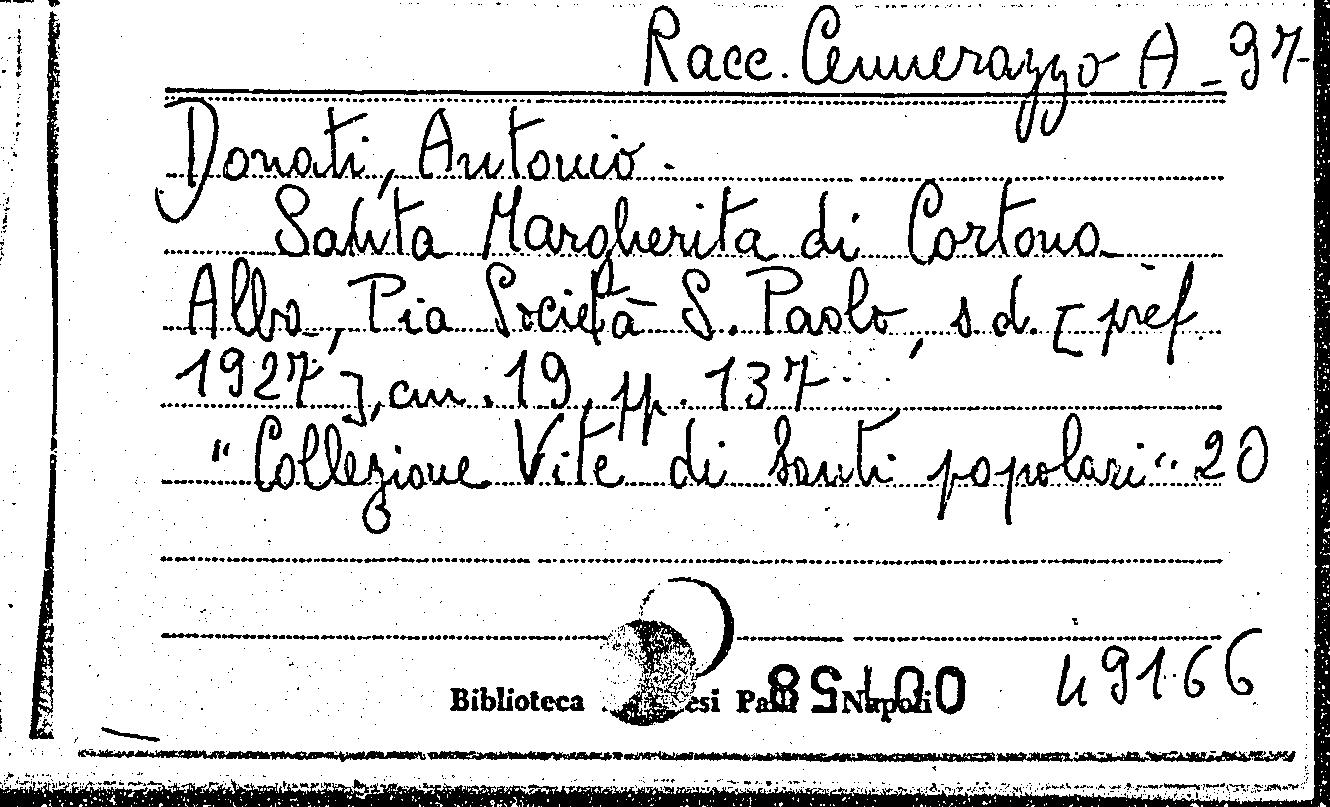 Racc. Cennerazzo A - 97
Donati, Antonio.
Santa Margherita di Cortona
Alba, Pia Società S. Paolo, s d. [pref
1927], cm. 19, pp. 137
"Collezione Vite di Santi popolari" 20
49166
Biblioteca esi Napoli